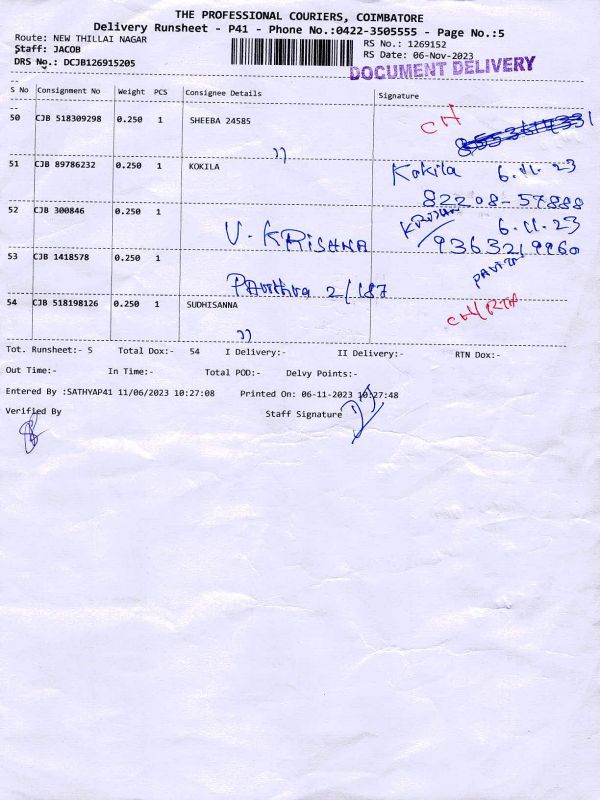 THE PROFESSIONAL COURIERS, COIMBATORE
Delivery Runsheet - P41 - Phone No.:0422-3505555 - Page No.:5
Route: NEW THILLAI NAGAR
RS No.: 1269152
Staff: JACOB
RS Date: 06-Nov-2023
DRS No.: DCJB126915205
DOCUMENT DELIVERY
S No Consignment No Weight PCS Consignee Details Signature
50 CJB 518309298 0.250 1 SHEEBA 24585 CH
51 CJB 89786232 0.250 1 KOKILA Kokila 6.11.23
82208-57888
52 CJB 300846 0.250 1 V. KRISHNA KRISHNA 6.11.23
9363219960
53 CJB 1418578 0.250 1 Pavithra 2/187
54 CJB 518198126 0.250 1 SUDHISANNA CH/RTA
Tot. Runsheet:- 5 Total Dox:- 54 I Delivery:- II Delivery:- RTN Dox:-
Out Time:- In Time:- Total POD:- Delvy Points:-
Entered By :SATHYAP41 11/06/2023 10:27:08 Printed On: 06-11-2023 10:27:48
Verified By Staff Signature